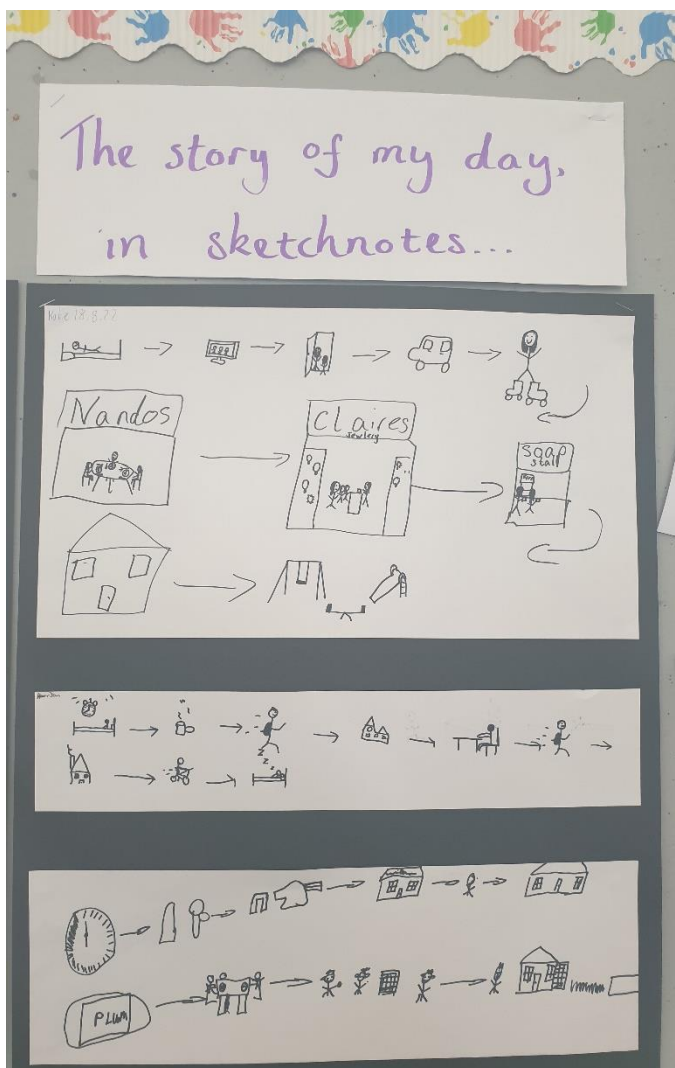 The story of my day,
in sketchnotes...
Katie 18.3.22
Nandos
Claires
Jewlery
Soap
Stall
z
z
z
PLUM